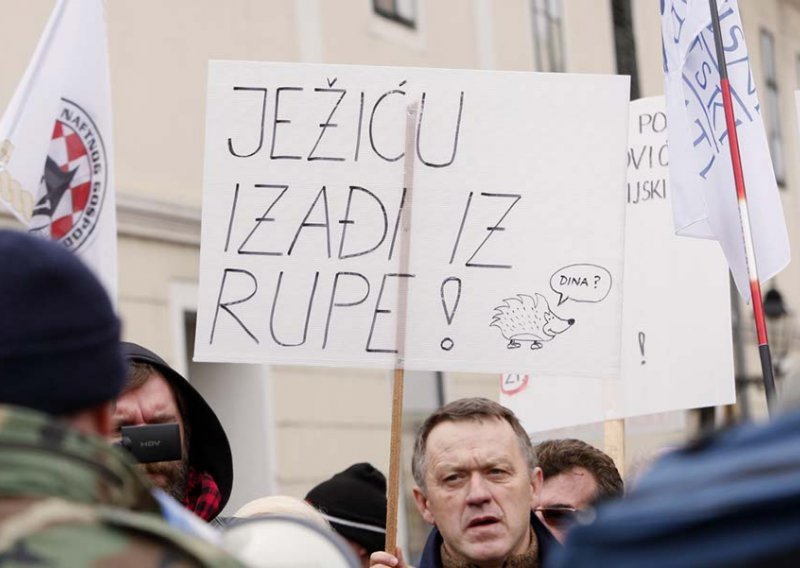 JEŽIĆU
IZAĐI IZ
RUPE!
DINA?
NAFTNOG GOSPOD
PO
OVIĆ
IJSKI
!
21
HDV